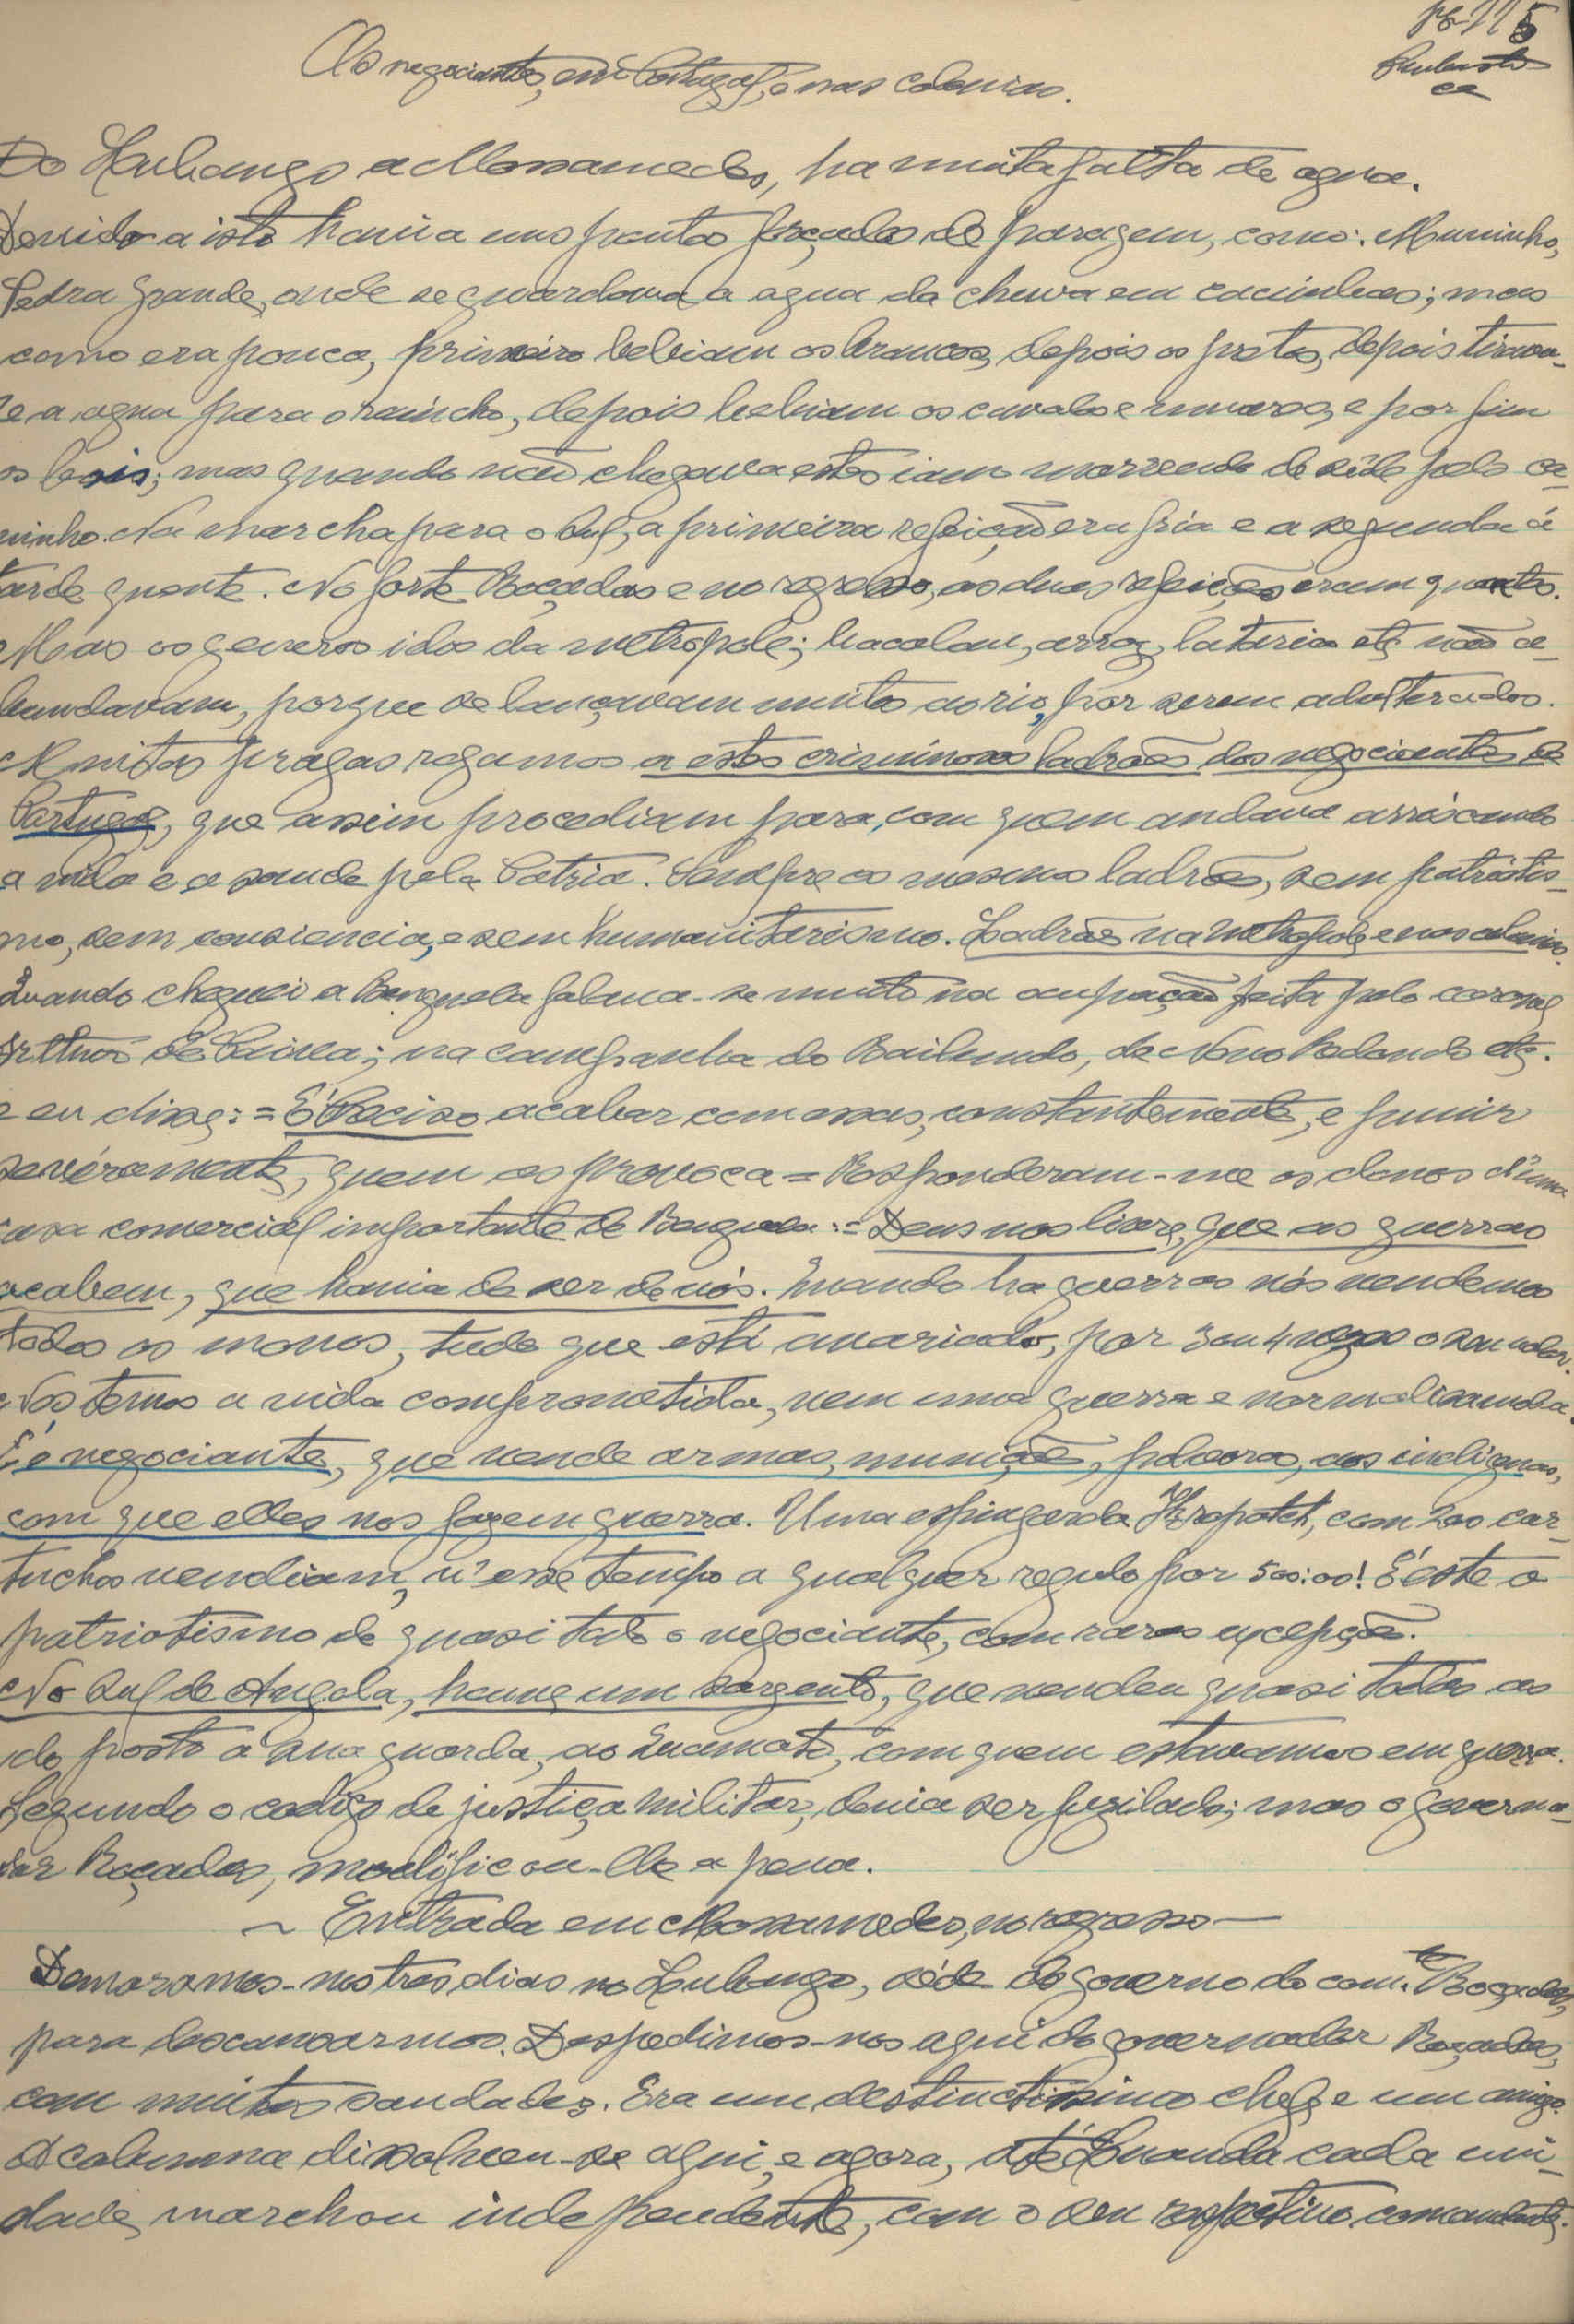 pg. 115
Os negociantes, em Portugal, e nas colonias.
Do Lubango a Mossamedes, ha muita falta de agua.
Devido a isto havia uns pontos forçados de paragem, como: Muninho,
Pedra Grande, onde se guardava a agua da chuva em cacimbas; mas
como era pouca, primeiro bebiam os brancos, depois os pretos, depois tirava-
se a agua para o rancho, depois bebiam os cavalos e muares, e por fim
os bois; mas quando não chegava estes iam morrendo de sêde pelo ca-
minho. Na marcha para o Sul, a primeira refeição era fria e a segunda á
tarde quente. No forte Roçadas e no regresso, as duas refeições eram quentes.
Mas os generos idos da metropole; bacalau, arroz, lataria etc não a-
bundavam, porque se lançavam muitos ao rio, por serem adulterados.
Muitas pragas rogamos a estes criminosos ladrões dos negociantes de
Portugal, que assim procediam para com quem andava arriscando
a vida e a saude pela Patria. Sempre os mesmos ladrões, sem patriotis-
mo, sem consiencia, e sem humanitarismo. Ladrões na metropole e nas colonias.
Quando cheguei a Benguela falava-se muito na ocupação feita pelo coronel
Arthur de Paiva; na campanha do Bailundo, de Novo Redondo etc.
e eu disse: = É Preciso acabar com essas, constantemente, e punir
sevéramente, quem as provoca = Responderam-me os donos d'uma
casa comercial importante de Benguela: = Deus nos livre, que as guerras
acabem, que havia de ser de nós. Quando ha guerras nós vendemos
todos os monos, tudo que está avariado, por 3 ou 4 vezes o seu valor.
Nós temos a vida comprometida, vem uma guerra e normalisamo-la.
É o negociante, que vende armas, munições, polvora, aos indigenas,
com que elles nos fazem guerra. Uma espingarda Kropatch, com 200 car-
tuchos vendiam, n'esse tempo a qualquer regulo por 500:00! É este o
patriotismo de quasi todo o negociante, com raras excepções.
No Sul de Angola, houve um sargento, que vendeu quasi todas as
do posto á sua guarda, ao Cuamato, com quem estavamos em guerra.
Segundo o codigo de justiça militar, devia ser fuzilado; mas o governa-
dor Roçadas, modificou-lhe a pena.
~ Entrada em Mossamedes, no regresso —
Demoramos-nos tres dias no Lubango, séde do governo do com.te Roçadas,
para descansarmos. Despedimos-nos aqui do governador Roçadas,
com muitas saudades. Era um destinctissimo chefe e um amigo.
A columna disolveu-se aqui, e agora, até Luanda cada uni-
dade, marchou independente, com o seu respetivo comandante.